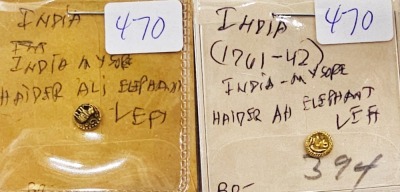 INDIA
470
INDIA MYSORE
HAIDER ALI ELEPHANT
LEFT
INDIA
470
(1761-42)
INDIA-MYSORE
HAIDER ALI ELEPHANT
LEFT
394